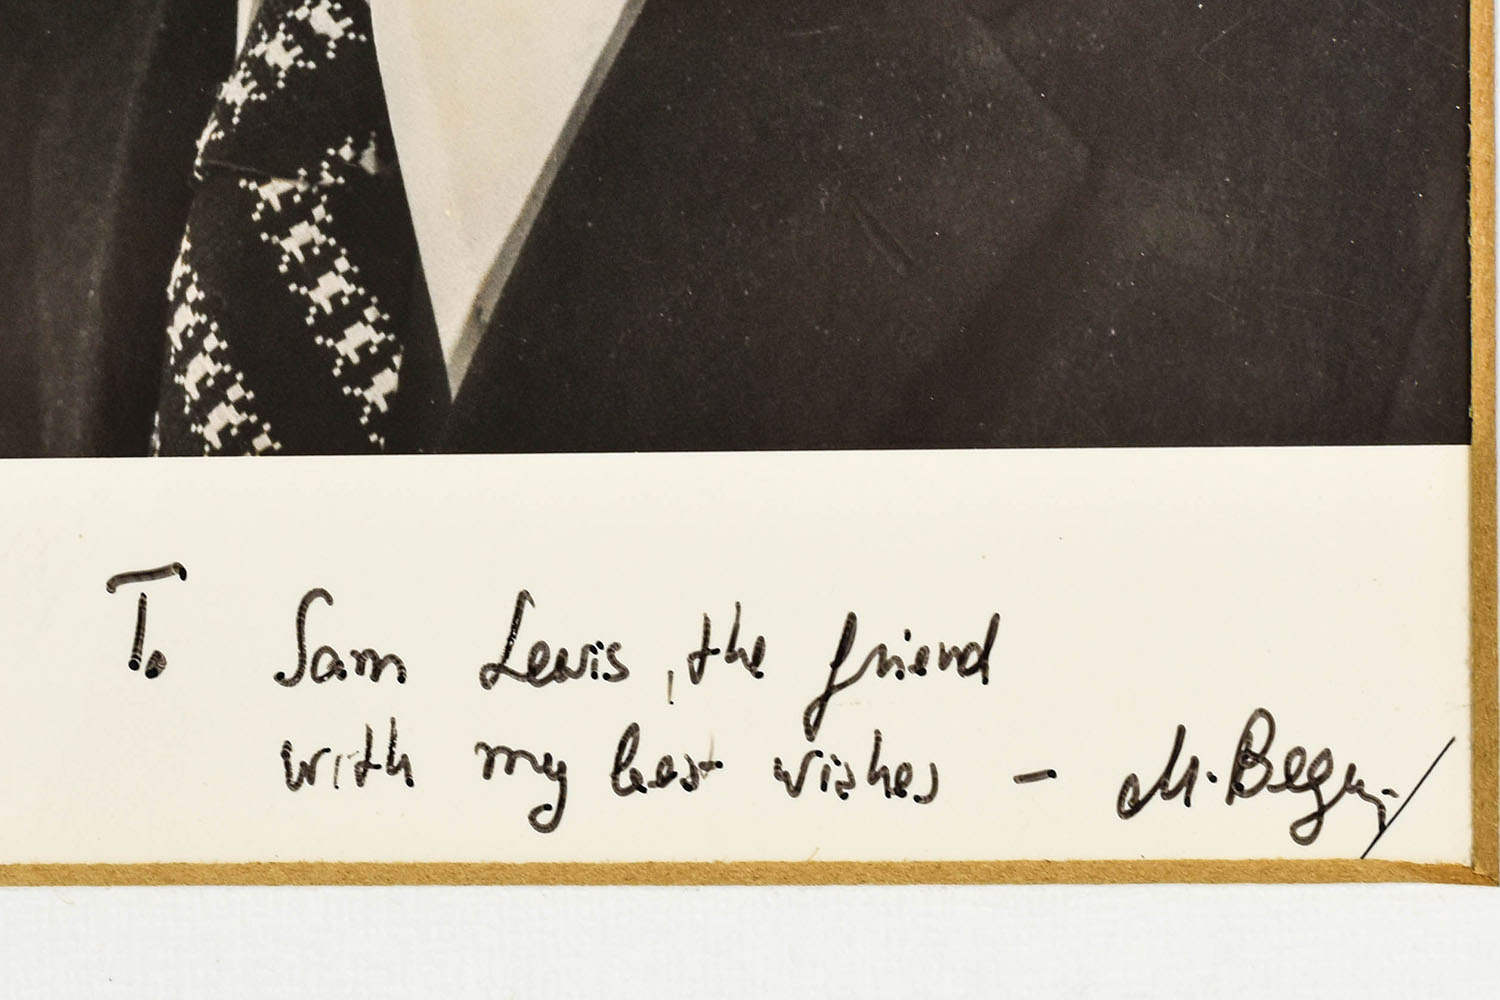 To Sam Lewis, the friend
with my best wishes – M. Begin